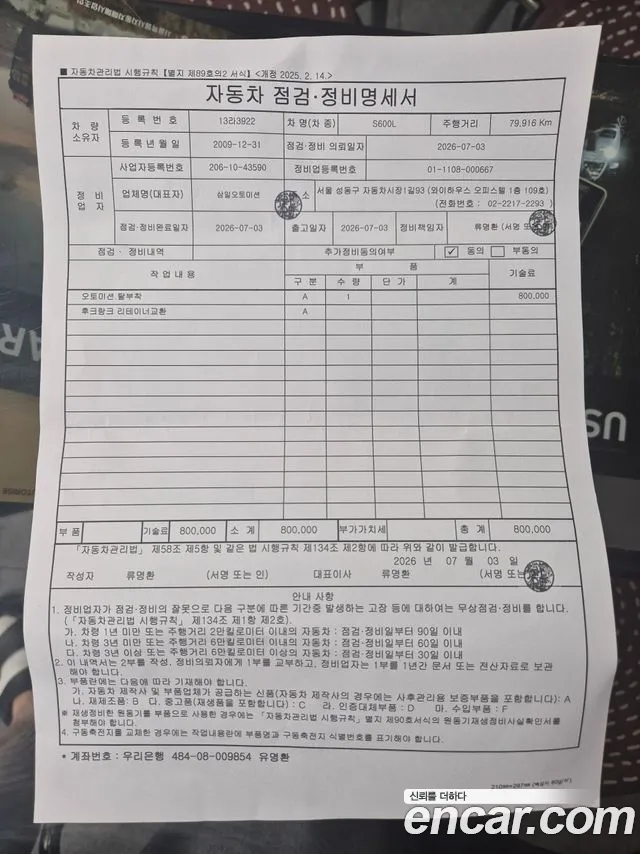 ■ 자동차관리법 시행규칙 [별지 제89호의2 서식] <개정 2025. 2. 14.>
자동차 점검·정비명세서
차 량 소유자 등 록 번 호 13라3922 차 명(차 종) S600L 주행거리 79,916 Km
등 록 년 월 일 2009-12-31 점검·정비 의뢰일자 2026-07-03
정 비 업 자 사업자등록번호 206-10-43590 정비업등록번호 01-1108-000667
업체명(대표자) 삼일오토미션 소 서울 성동구 자동차시장1길93 (와이하우스 오피스텔 1층 109호)
(전화번호 : 02-2217-2293 )
점검·정비완료일자 2026-07-03 출고일자 2026-07-03 정비책임자 류명환 (서명 또는
점검 · 정비내역 추가정비동의여부 ✓ 동의 부동의
작 업 내 용 부 품 기술료
구 분 수 량 단 가 계
오토미션 탈부착 A 1 800,000
후크랑크 리테이너교환 A
부 품 기술료 800,000 소 계 800,000 부가가치세 총 계 800,000
「자동차관리법」 제58조 제5항 및 같은 법 시행규칙 제134조 제2항에 따라 위와 같이 발급합니다.
2026 년 07 월 03 일
작성자 류명환 (서명 또는 인) 대표이사 류명환 (서명 또는
안내 사항
1. 정비업자가 점검·정비의 잘못으로 다음 구분에 따른 기간중 발생하는 고장 등에 대하여는 무상점검·정비를 합니다.
(「자동차관리법 시행규칙」 제134조 제1항 제2호).
가. 차령 1년 미만 또는 주행거리 2만킬로미터 이내의 자동차 : 점검·정비일부터 90일 이내
나. 차령 3년 미만 또는 주행거리 6만킬로미터 이내의 자동차 : 점검·정비일부터 60일 이내
다. 차령 3년 이상 또는 주행거리 6만킬로미터 이상의 자동차 : 점검·정비일부터 30일 이내
2. 이 내역서는 2부를 작성, 정비의뢰자에게 1부를 교부하고, 정비업자는 1부를 1년간 문서 또는 전산자료로 보관
해야 합니다.
3. 부품란에는 다음에 따라 기재해야 합니다.
가. 자동차 제작사 및 부품업체가 공급하는 신품(자동차 제작사의 경우에는 사후관리용 보증부품을 포함합니다): A
나. 재제조품 : B 다. 중고품(재생품을 포함합니다) : C 라. 인증대체부품 : D 마. 수입부품 : F
※ 재생정비한 원동기를 부품으로 사용한 경우에는 「자동차관리법 시행규칙」 별지 제90호서식의 원동기재생정비사실확인서를
첨부해야 합니다.
4. 구동축전지를 교체한 경우에는 작업내용란에 부품명과 구동축전지 식별번호를 표기해야 합니다.
* 계좌번호 : 우리은행 484-08-009854 유명환
210㎜×297㎜ (백상지 80g/㎡)
신뢰를 더하다
encar.com